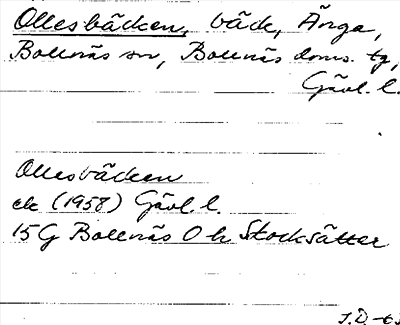 Ollesbäcken, bäck, Änga,
Bollnäs sn, Bollnäs doms. tg,
Gävl. l.
Ollesbäcken
ek (1958) Gävl. l.
15G Bollnäs O h Stocksätter
J.D.